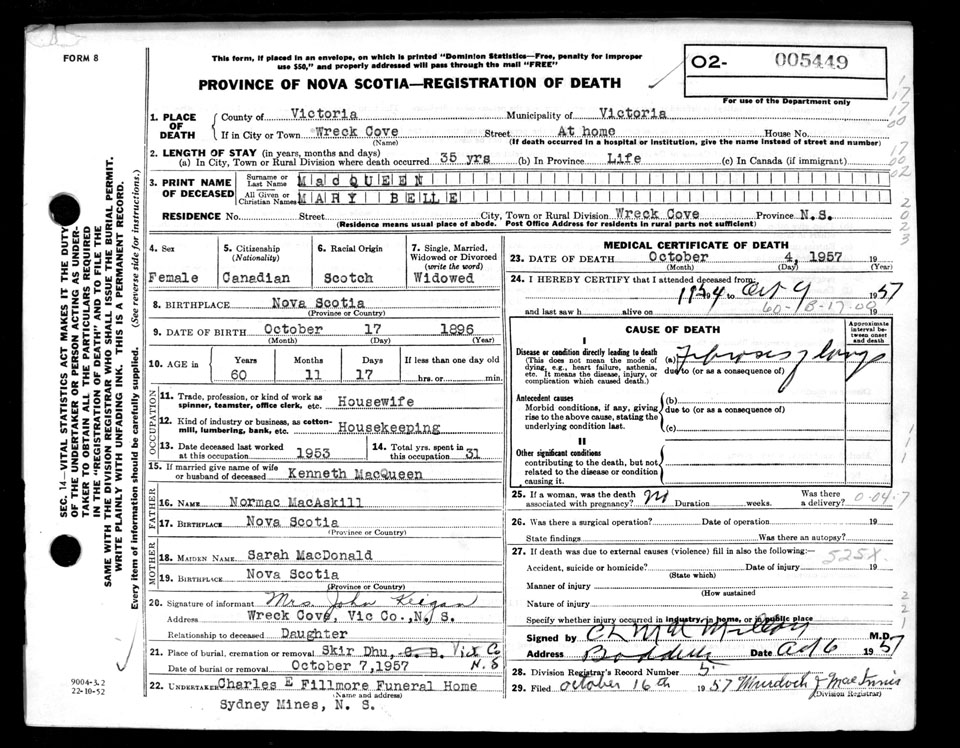 FORM 8
This form, if placed in an envelope, on which is printed "Dominion Statistics—Free, penalty for improper
use $50," and properly addressed will pass through the mail "FREE"
PROVINCE OF NOVA SCOTIA—REGISTRATION OF DEATH
02- 005449
For use of the Department only
1. PLACE OF DEATH
County of Victoria Municipality of Victoria
If in City or Town Wreck Cove Street At home House No.
(Name) (If death occurred in a hospital or institution, give the name instead of street and number)
2. LENGTH OF STAY (in years, months and days)
(a) In City, Town or Rural Division where death occurred 35 yrs (b) In Province Life (c) In Canada (if immigrant)
3. PRINT NAME OF DECEASED
Surname or Last Name MacQUEEN
All Given or Christian Names MARY BELLE
RESIDENCE No. Street City, Town or Rural Division Wreck Cove Province N.S.
(Residence means usual place of abode. Post Office Address for residents in rural parts not sufficient)
4. Sex
Female
5. Citizenship (Nationality)
Canadian
6. Racial Origin
Scotch
7. Single, Married, Widowed or Divorced (write the word)
Widowed
8. BIRTHPLACE Nova Scotia
(Province or Country)
9. DATE OF BIRTH October 17 1896
(Month) (Day) (Year)
10. AGE in
Years Months Days If less than one day old
60 11 17 hrs. or min.
OCCUPATION
11. Trade, profession, or kind of work as
spinner, teamster, office clerk, etc. Housewife
12. Kind of industry or business, as cotton-
mill, lumbering, bank, etc. Housekeeping
13. Date deceased last worked
at this occupation 1953
14. Total yrs. spent in
this occupation 31
15. If married give name of wife
or husband of deceased Kenneth MacQueen
FATHER
16. NAME Normac MacAskill
17. BIRTHPLACE Nova Scotia
(Province or Country)
MOTHER
18. MAIDEN NAME Sarah MacDonald
19. BIRTHPLACE Nova Scotia
(Province or Country)
20. Signature of informant Mrs. John Keigan
Address Wreck Cove, Vic Co., N. S.
Relationship to deceased Daughter
21. Place of burial, cremation or removal Skir Dhu, C. B. Vict Co
Date of burial or removal October 7,1957 N.S
22. UNDERTAKER Charles E Fillmore Funeral Home
(Name and address)
Sydney Mines, N. S.
MEDICAL CERTIFICATE OF DEATH
23. DATE OF DEATH October 4, 1957 19
(Month) (Day) (Year)
24. I HEREBY CERTIFY that I attended deceased from:
1954 to Oct 4 1957
and last saw h alive on 19
60-18-17.00
CAUSE OF DEATH
Approximate interval between onset and death
I
Disease or condition directly leading to death
(This does not mean the mode of
dying, e.g., heart failure, asthenia,
etc. It means the disease, injury, or
complication which caused death.)
(a) Fibrosis of lungs
due to (or as a consequence of)
Antecedent causes
Morbid conditions, if any, giving
rise to the above cause, stating the
underlying condition last.
(b)
due to (or as a consequence of)
(c)
II
Other significant conditions
contributing to the death, but not
related to the disease or condition
causing it.
25. If a woman, was the death
associated with pregnancy? No Duration weeks. Was there a delivery?
0-04-7
26. Was there a surgical operation? Date of operation 19
State findings Was there an autopsy?
27. If death was due to external causes (violence) fill in also the following:—
525X
Accident, suicide or homicide? Date of injury 19
(State which)
Manner of injury
(How sustained)
Nature of injury
Specify whether injury occurred in industry, in home, or in public place
Signed by M.D.
Address Baddeck Date Oct 6 1957
28. Division Registrar's Record Number 5
29. Filed October 16th 1957 Murdoch J MacInnis
(Division Registrar)
SEC. 14—VITAL STATISTICS ACT MAKES IT THE DUTY
OF THE UNDERTAKER OR PERSON ACTING AS UNDER-
TAKER TO OBTAIN ALL THE PARTICULARS REQUIRED
IN THE "REGISTRATION OF DEATH" AND TO FILE THE
SAME WITH THE DIVISION REGISTRAR WHO SHALL ISSUE THE BURIAL PERMIT.
WRITE PLAINLY WITH UNFADING INK. THIS IS A PERMANENT RECORD.
Every item of information should be carefully supplied. (See reverse side for instructions.)
9004-3.2
22-10-52